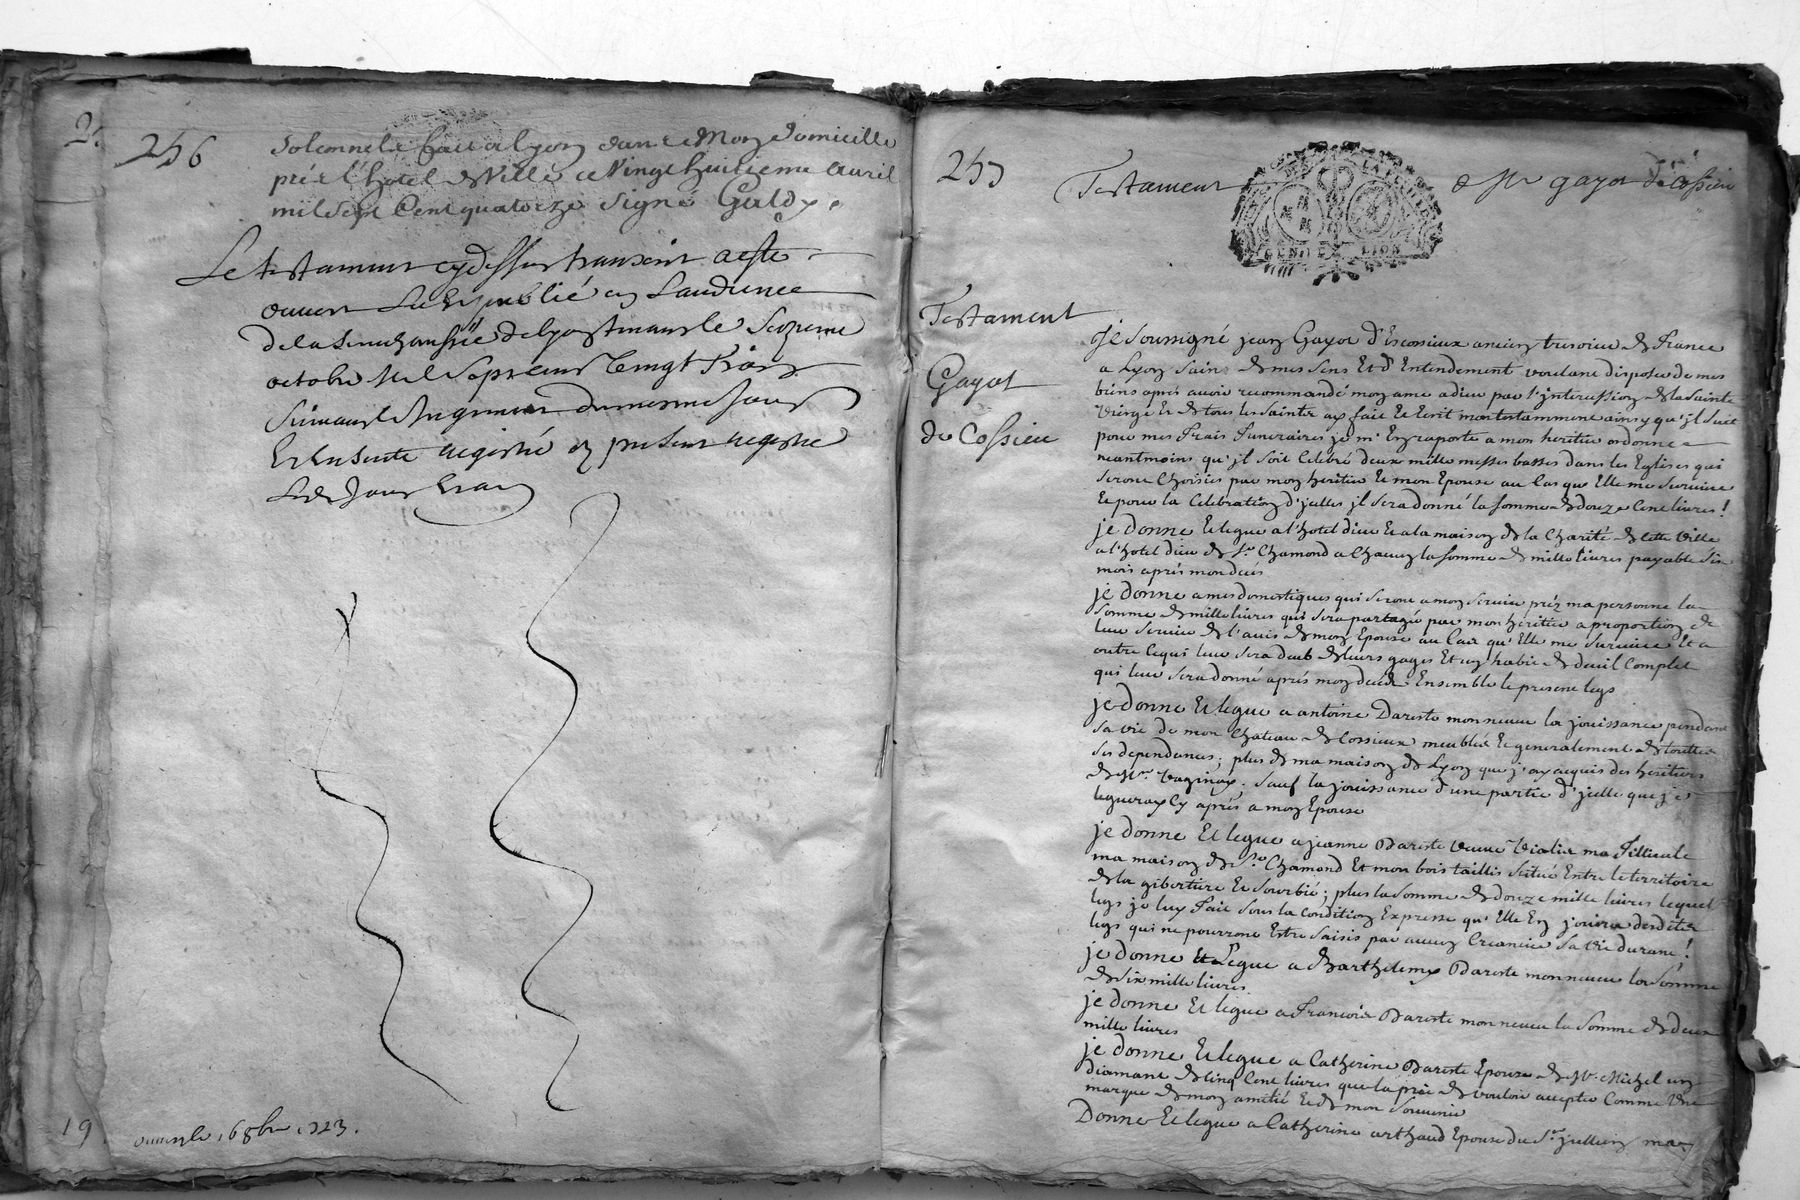 256
Solemnele fait a Lyon dans Mon domicille
prés l'hotel de Ville ce Vingt huitieme avril
mil Sept Cent quatorze Signé Guldy.
Le testament cy dessus transcrit a esté
ouvert Lu Et publié en Laudience
de la Senechaussée de Lyon
octobre Mil Sept cent Vingt Trois
Suivant le Jugement du mesme Jour
Et Ensuite registré au present registre
Ledit Jour
19
ouvert le 16 8bre 1723.
255
Testament de Mr gayot de Cossieu
GEN DE LION
Testament
Gayot
de Cossieu
Je Soussigné jean Gayot D'Escossieux ancien tresorier de France
a Lyon Sain de mes Sens Et d'Entendement voulant disposer de mes
biens aprés avoir recommandé mon ame a dieu par l'intercession de la Sainte
Vierge Et de tous les Saints ay fait Et Ecrit mon testamment ainsy qu'jl Suit
pour mes Frais Funeraires je m'En raporte a mon heritier ordonne
neantmoins qu'jl Soit Celebré deux mille messes basses dans les Eglises qui
Seront Choisies par mon heritier Et mon Epouse au Cas qu'Elle me Survive
Et pour la Celebration d'jcelles jl Sera donné la Somme de douze Cent livres!
je Donne Et legue a l'hotel dieu Et a la maison de la Charité de cette Ville
a l'hotel dieu de St Chamond a Chacun la Somme de mille livres payable Six
mois aprés mon decés
je Donne a mes domestiques qui Seront a mon Service préz ma personne la
Somme de mille livres qui Sera partagée par mon heritier a proportion de
leur Service de l'avis de mon Epouse au Cas qu'Elle me Survive Et a
outre Ce qui leur Sera deub de leurs gages Et un habit de deuil Complet
qui leur Sera donné aprés mon decés Ensemble le present legs
je Donne Et legue a antoine Dareste mon neveu la jouissance pendant
Sa vie de mon Chateau de Cossieux meublé Et generalement de touttes
Ses dependances; plus de ma maison de Lyon que j'ay acquis des heritiers
de Mr Vaginay. Sauf la jouissance d'une partie d'jcelle que je
legueray Cy aprés a mon Epouse
je Donne Et legue a jeanne Dareste Veuve Vialis ma Fillieule
ma maison de St Chamond Et mon bois taillis Scitué Entre le territoire
de la gibertiere Et Sourbié; plus la Somme de douze mille livres lequel
legs je luy Fait Sous la Condition Expresse qu'Elle En jouira desdites
legs qui ne pourront Estre Saisis par aucun Creancier Sa vie durant!
je Donne Et Legue a Barthelemy Dareste mon neveu la Somme
de Six mille livres
je Donne Et legue a Francois Dareste mon neveu la Somme de deux
mille livres
je Donne Et legue a Catherine Dareste Epouse de Mr Michel un
diamant de Cinq Cent livres que la prie de vouloir accepter Comme Une
marque de mon amitié Et de mon Souvenir
Donne Et legue a Catherine arthaud Epouse du Sr jullien ma